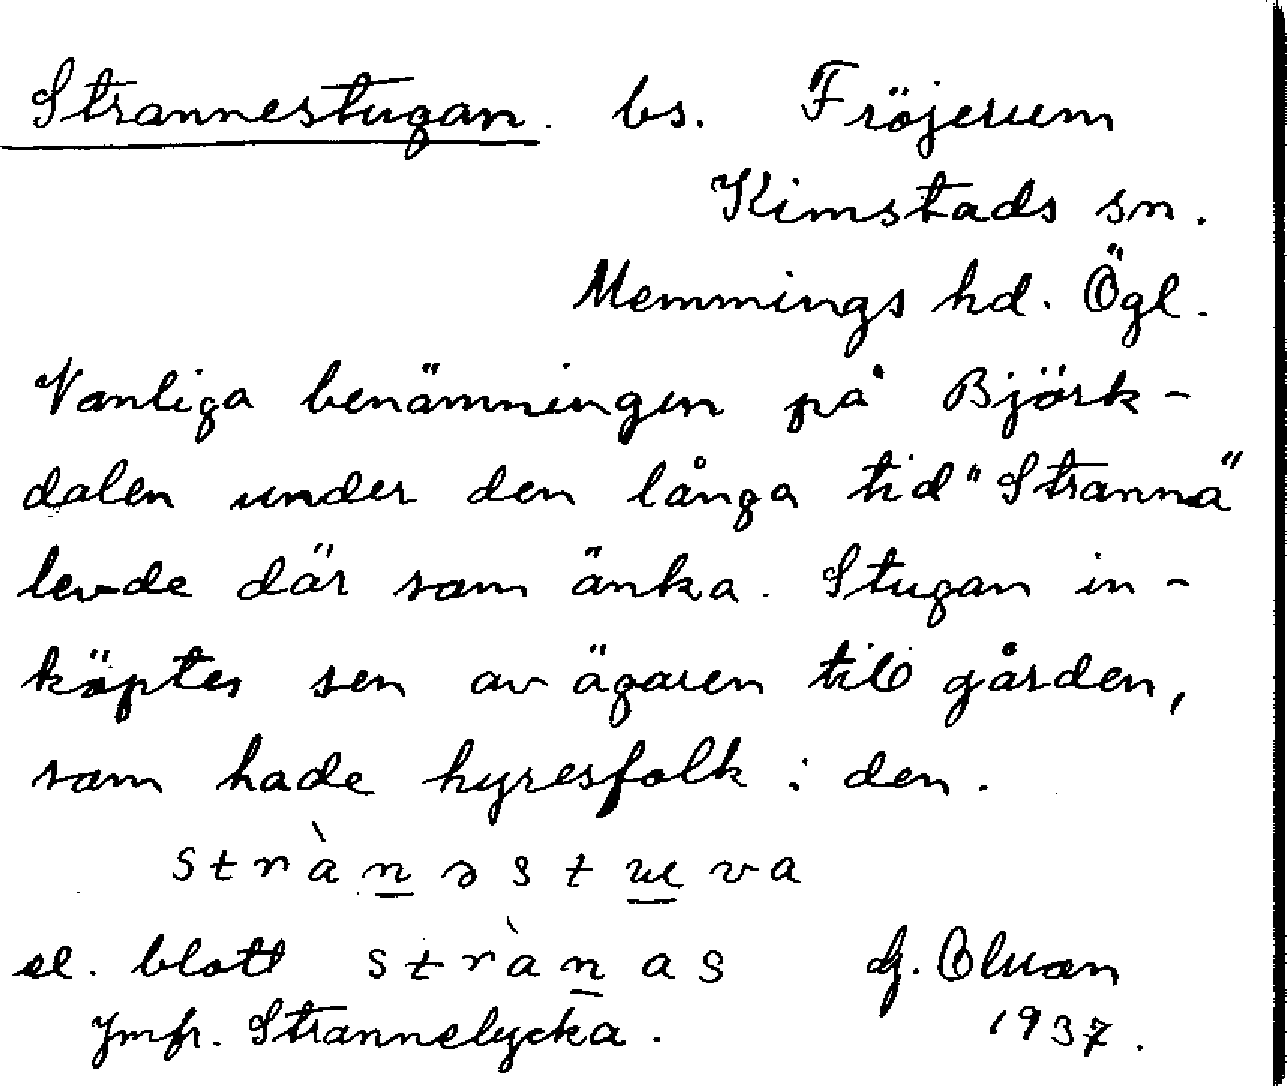 Strannestugan. bs. Fröjerum
Kimstads sn.
Memmings hd. Ögl.
Vanliga benämningen på Björk-
dalen under den långa tid "Stranna"
levde där som änka. Stugan in-
köptes sen av ägaren till gården,
som hade hyresfolk i den.
strànəstuva
el. blott strànas G. Olson
Jmfr. Strannelycka. 1937.